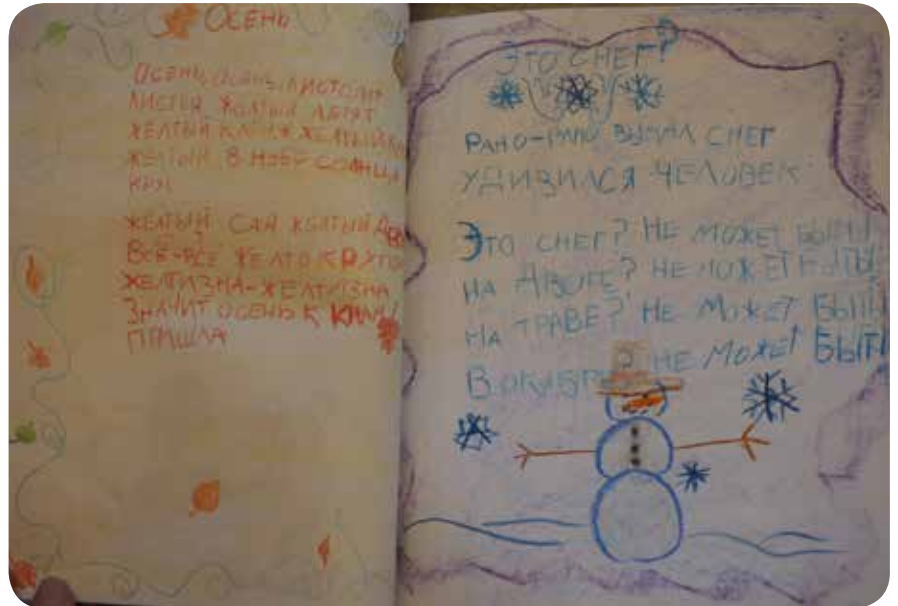 ОСЕНЬ
ОСЕНЬ, ОСЕНЬ, ЛИСТОПАД
ЛИСТЬЯ ЖОЛТЫИ ЛЕТЯТ
ЖЕЛТЫЙ КЛЁН ЖЕЛТЫЙ
ЖЕЛТЫЙ В НЕБЕ СОЛНЦА
КРУГ
ЖЕЛТЫЙ САД ЖЕЛТЫЙ ДВОР
ВСЁ-ВСЁ ЖЕЛТО КРУГОМ
ЖЕЛТИЗНА-ЖЕЛТИЗНА
ЗНАЧИТ ОСЕНЬ К НАМ
ПРИШЛА
ЭТО СНЕГ?
РАНО-РАНО ВЫПАЛ СНЕГ
УДИВИЛСЯ ЧЕЛОВЕК
ЭТО СНЕГ? НЕ МОЖЕТ БЫТЬ!
НА ДВОРЕ? НЕ МОЖЕТ БЫТЬ!
НА ТРАВЕ? НЕ МОЖЕТ БЫТЬ!
В ОКТЯБРЕ? НЕ МОЖЕТ БЫТЬ!